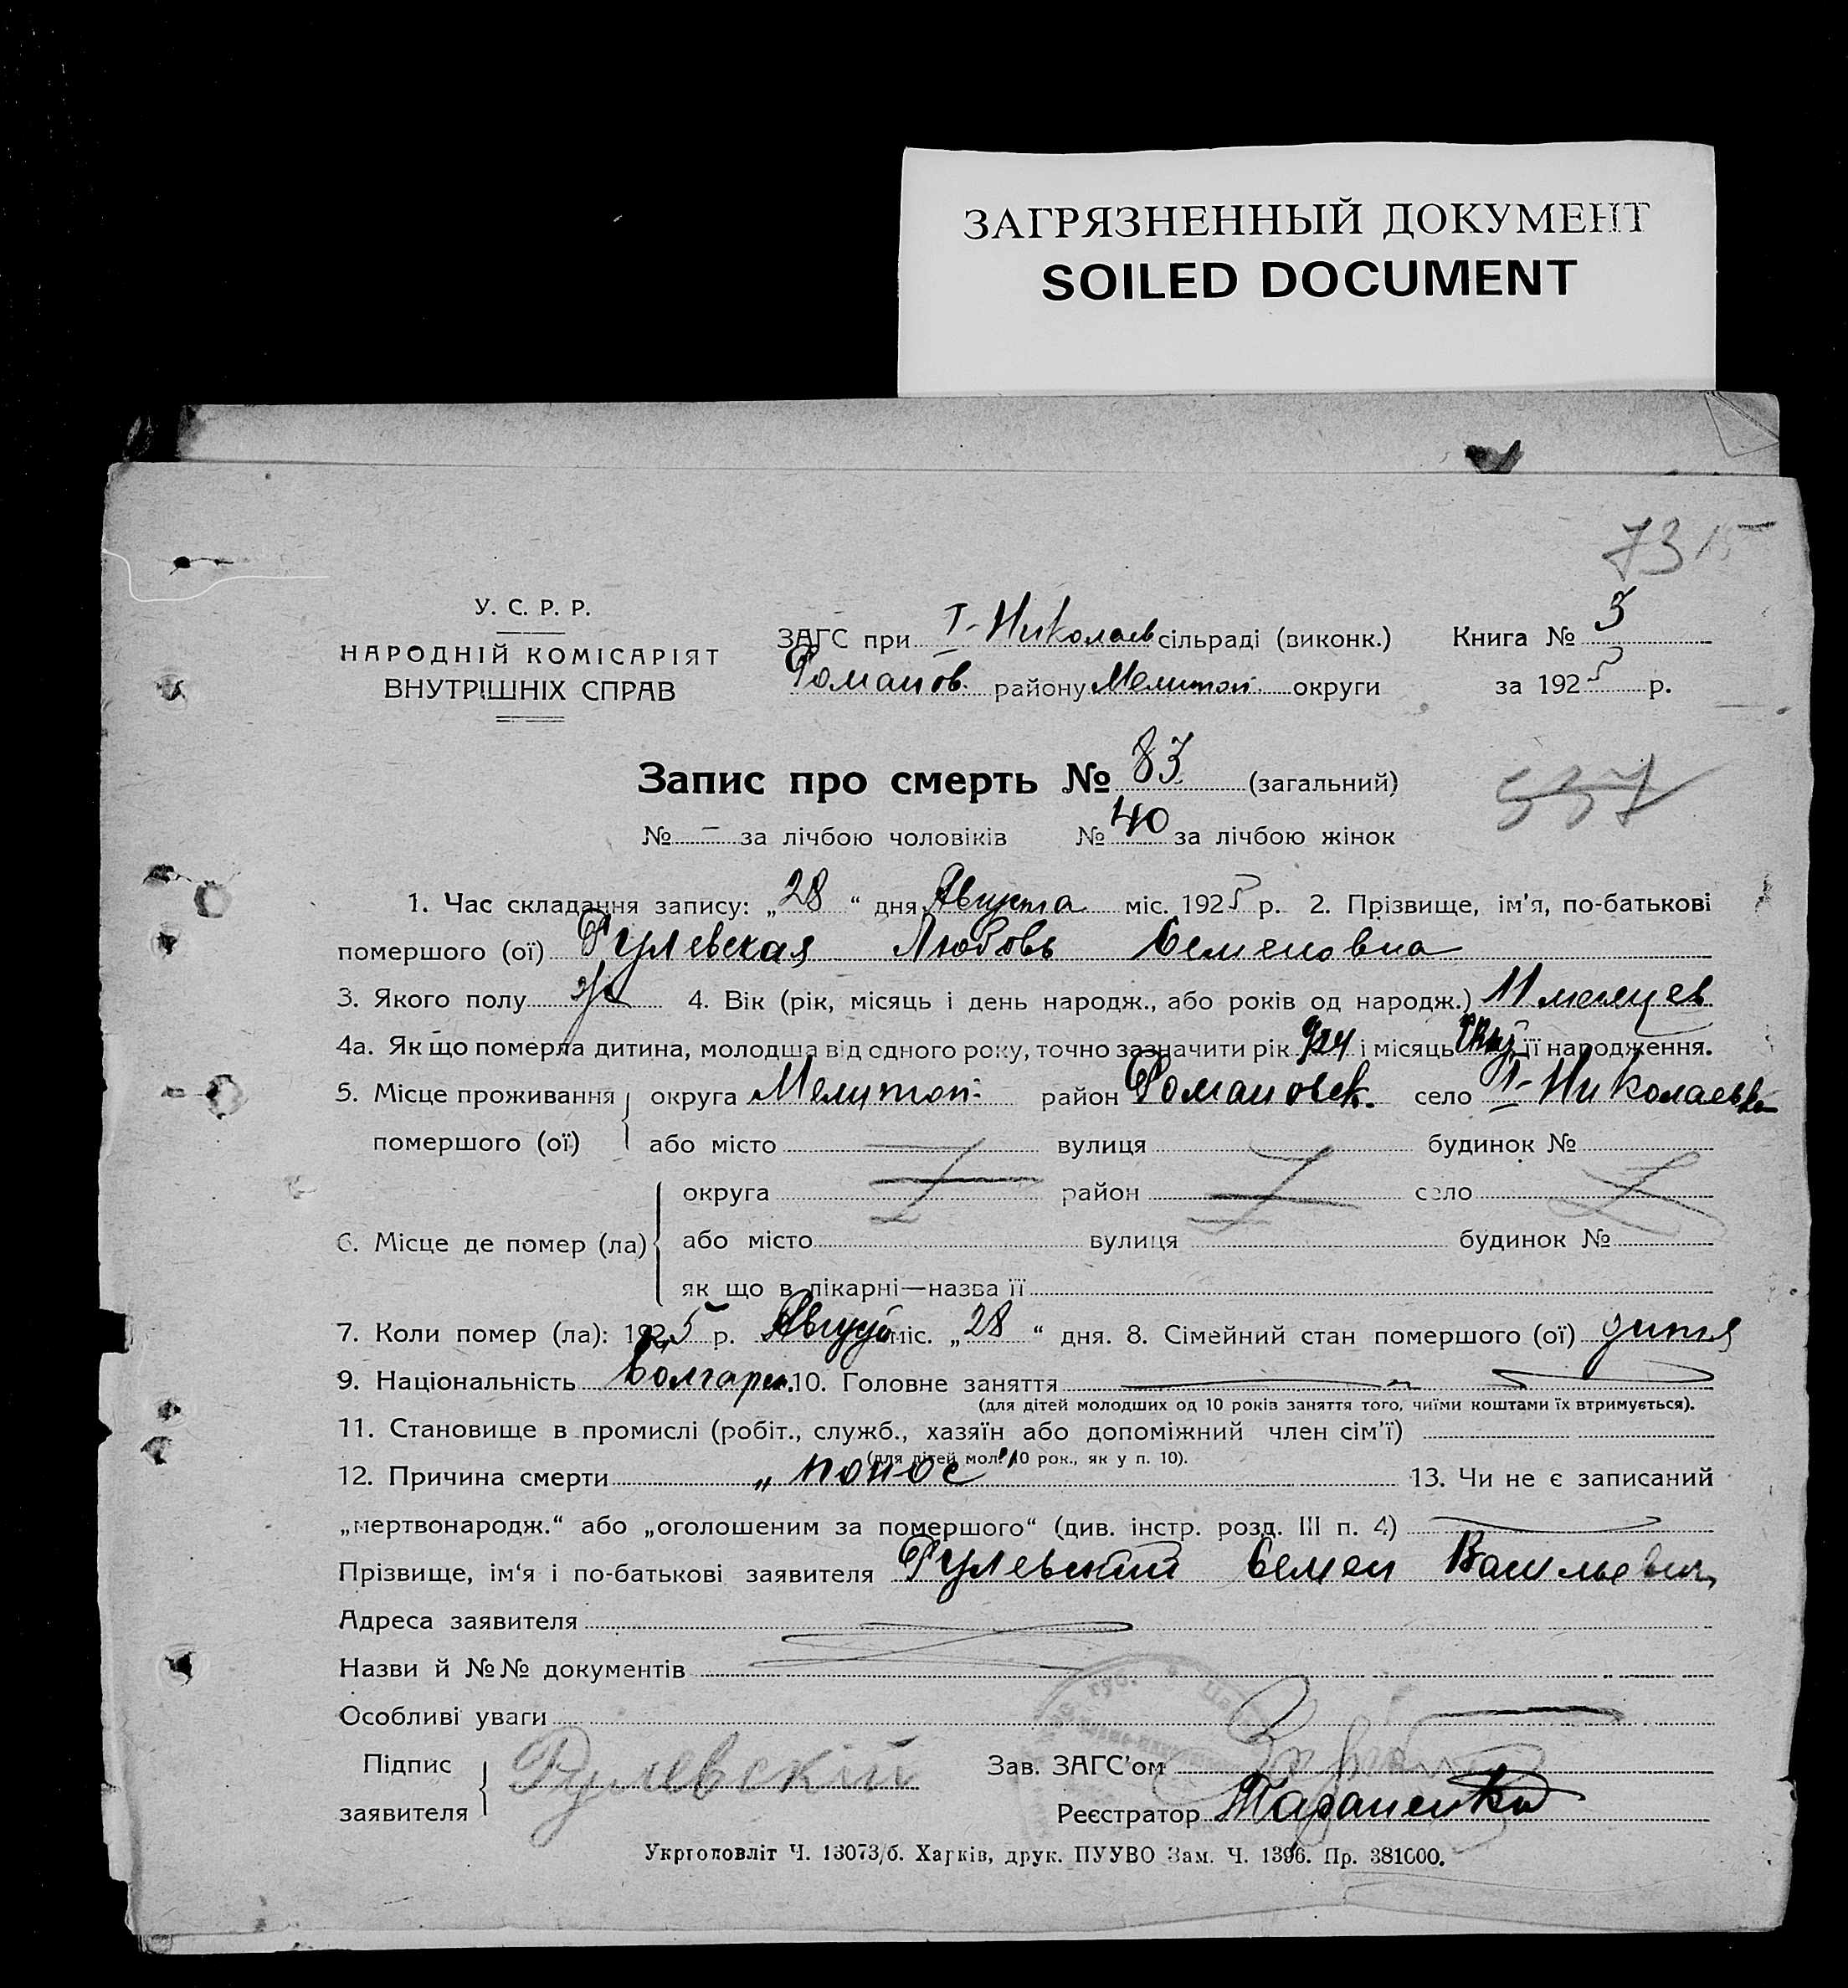 ЗАГРЯЗНЕННЫЙ ДОКУМЕНТ
SOILED DOCUMENT
73
У. С. Р. Р.
НАРОДНІЙ КОМІСАРІЯТ
ВНУТРІШНІХ СПРАВ
ЗАГС при Т-Николаев сільраді (виконк.) Книга №
Романов. району Мелитоп. округи за 1925 р.
Запис про смерть № 83 (загальний)
537
№ – за лічбою чоловіків № 40 за лічбою жінок
1. Час складання запису: „28“ дня Августа міс. 1925 р. 2. Прізвище, ім'я, по-батькові
помершого (ої) Гулевская Любовь Семеновна
3. Якого полу ж 4. Вік (рік, місяць і день народж., або років од народж.) 11 месяцев
4а. Як що померла дитина, молодша від одного року, точно зазначити рік 924 і місяць її народження.
5. Місце проживання округа Мелитоп. район Романовск. село Т-Николаевка
помершого (ої) або місто вулиця будинок №
округа район село
6. Місце де помер (ла) або місто вулиця будинок №
як що в лікарні—назва її
7. Коли помер (ла): 1925 р. Август міс. „28“ дня. 8. Сімейний стан помершого (ої) дитя
9. Національність болгарка. 10. Головне заняття
(для дітей молодших од 10 років заняття того, чиїми коштами їх втримується).
11. Становище в промислі (робіт., служб., хазяїн або допоміжний член сім'ї)
(для дітей мол. 10 рок., як у п. 10).
12. Причина смерти „понос" 13. Чи не є записаний
„мертвонародж.“ або „оголошеним за помершого“ (див. інстр. розд. III п. 4)
Прізвище, ім'я і по-батькові заявителя Гулевский Семен Васильевич
Адреса заявителя
Назви й №№ документів
Особливі уваги
Підпис Гулевскій Зав. ЗАГС'ом
заявителя Реєстратор Тараненко
Укрголовліт Ч. 13073/б. Харків, друк. ПУУВО Зам. Ч. 1396. Пр. 381000.